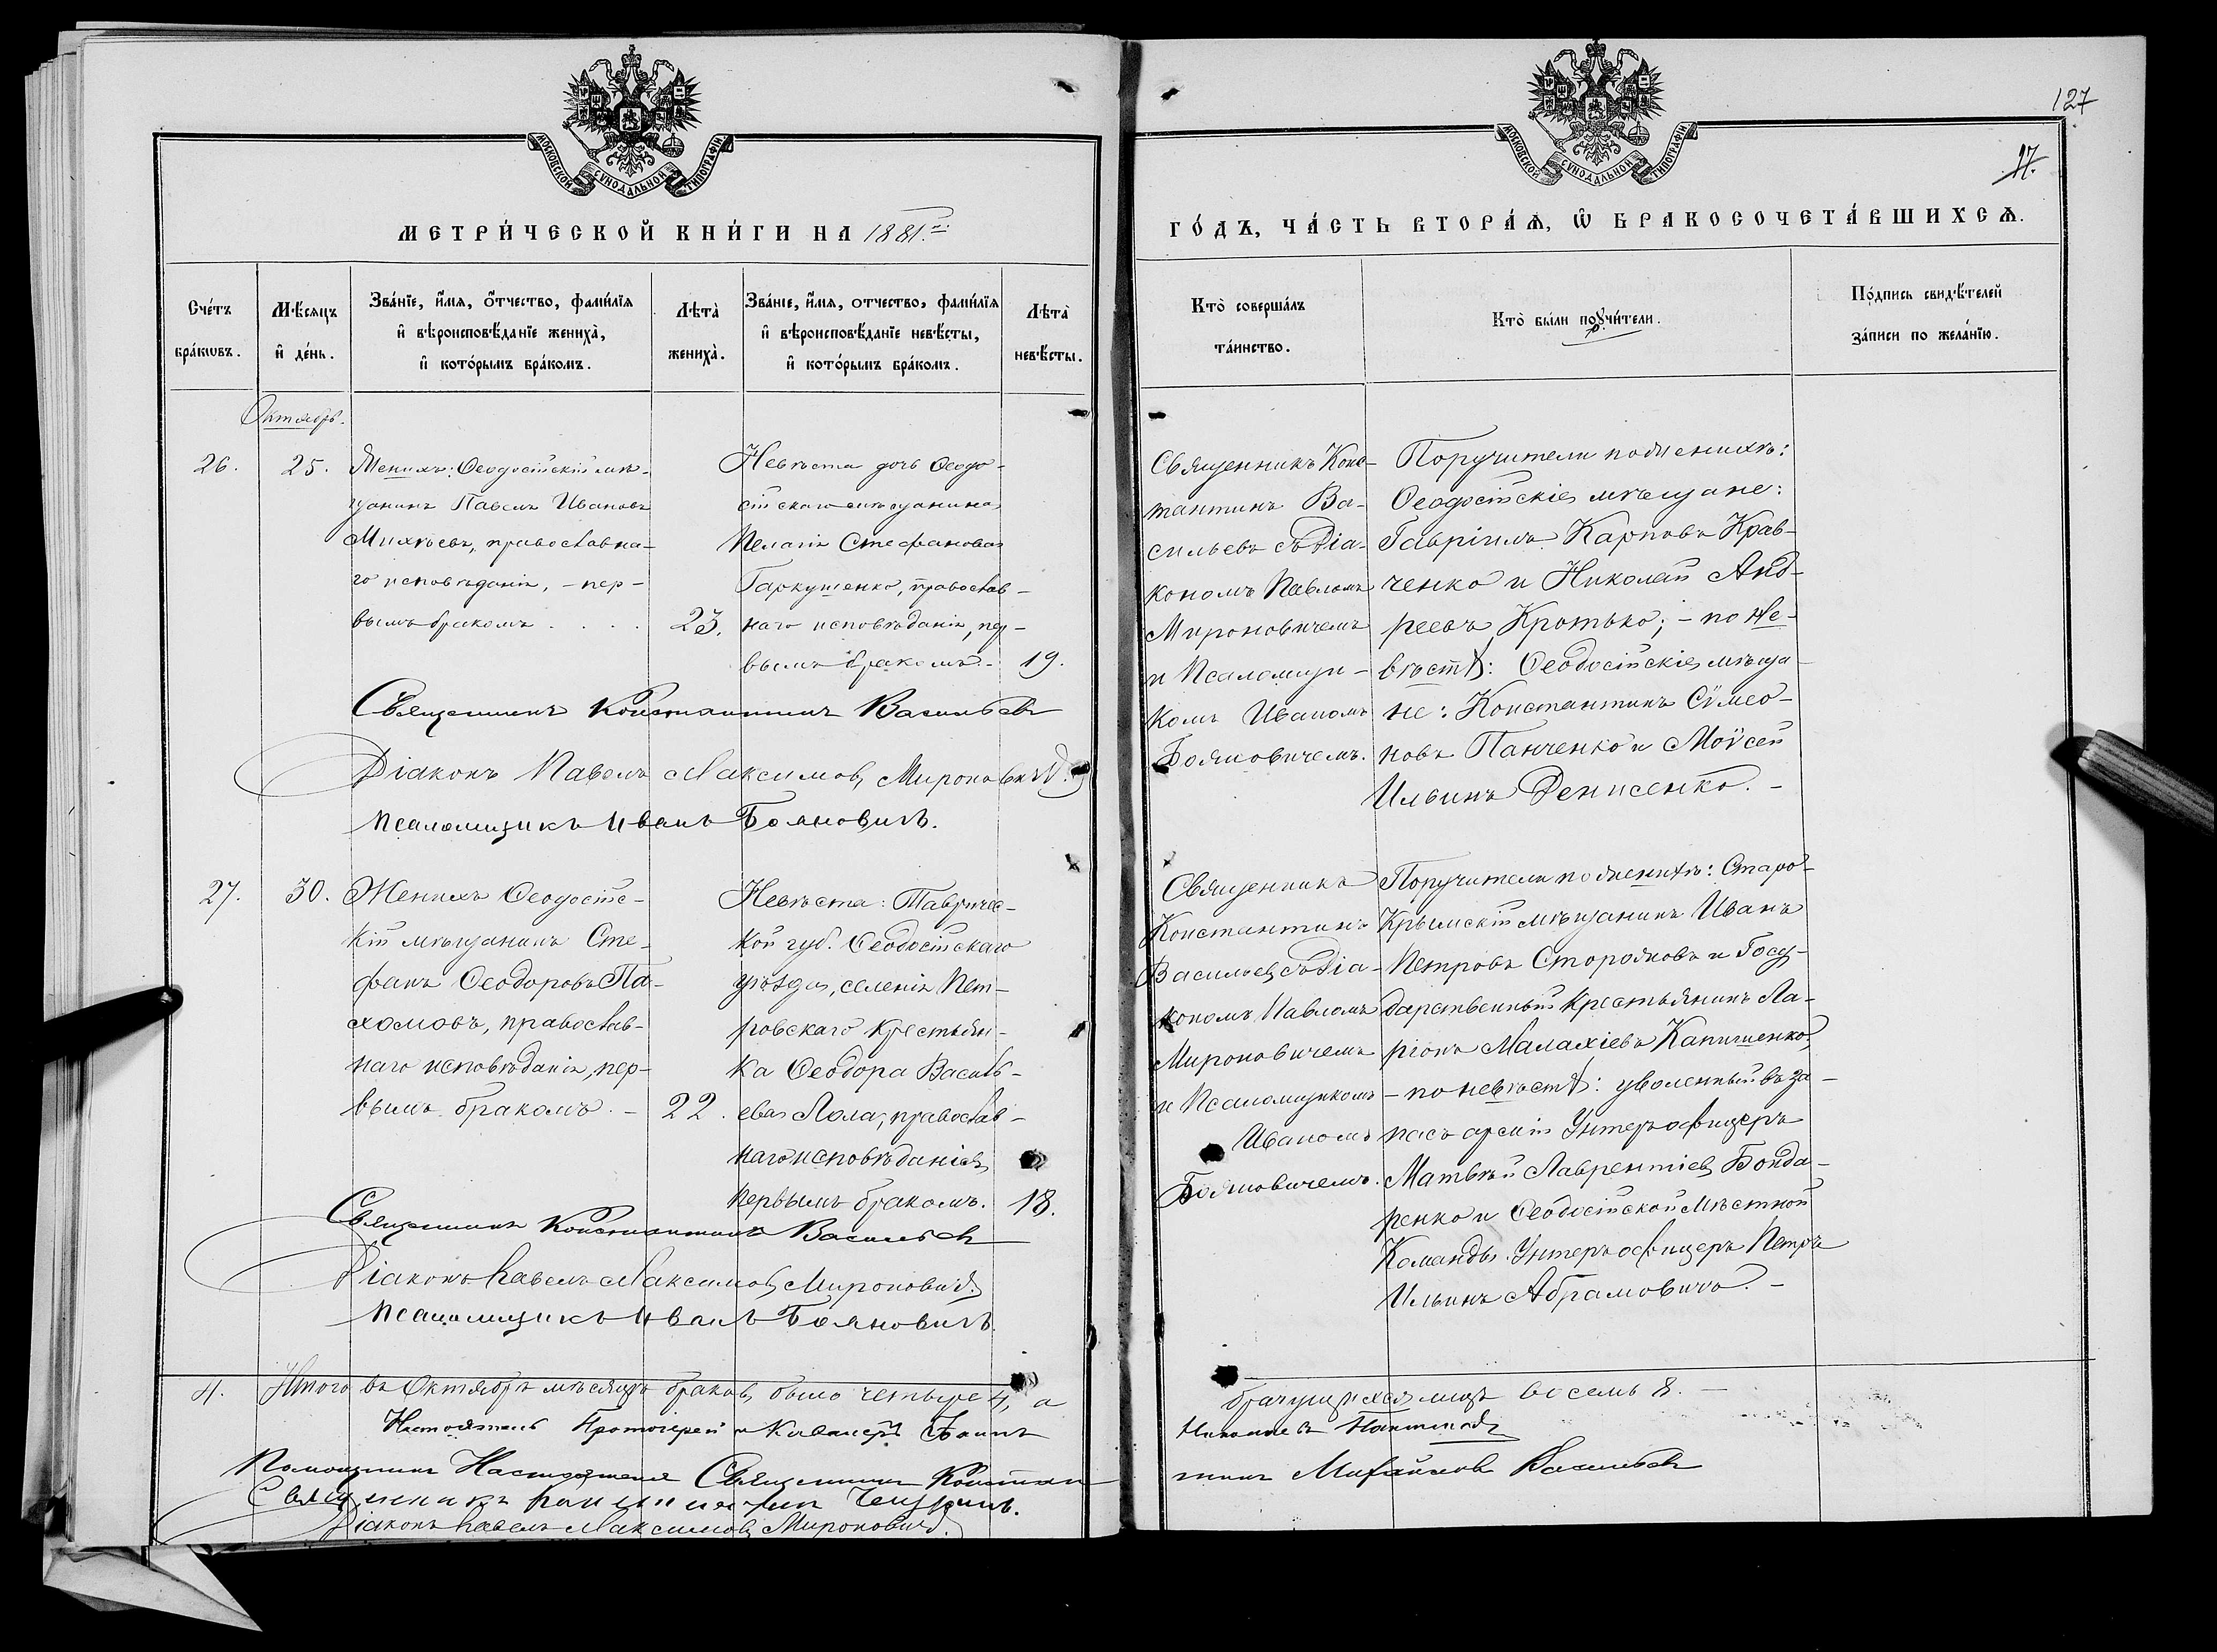 127
17.
МОСКОВСКОЙ СУНОДАЛЬНОЙ ТИПОГРАФІИ
МОСКОВСКОЙ СУНОДАЛЬНОЙ ТИПОГРАФІИ
МЕТРИ́ЧЕСКОЙ КНИ́ГИ НА 1881.й
ГО́ДЪ, ЧА́СТЬ ВТОРА́Ѧ, Ѿ БРАКОСОЧЕТА́ВШИХСѦ.
Сче́тъ
бра́кωвъ.
Мѣ́сяцъ
и҆ де́нь.
Зва́нїе, и҆́мя, о҆́тчество, фами́лїя
и҆ вѣроисповѣ́данїе жениха̀,
и҆ кото́рымъ бра́комъ.
Лѣта̀
жениха̀.
Зва́нїе, и҆́мя, отчество, фами́лїя
и҆ вѣроисповѣ́данїе невѣ́сты,
и҆ кото́рымъ бра́комъ.
Лѣта̀
невѣ́сты.
Кто̀ соверша́лъ
та́инство.
Кто̀ бы́ли поꙋчи́тели.
р
По́дпись свидѣ́телей
за́писи по жела́нїю.
Октябрь.
26.
25.
Женихъ: Ѳеодосійскій мѣ-
щанинъ Павелъ Ивановъ
Михѣевъ, православна-
го исповѣданія, - пер-
вымъ бракомъ . . . .
23.
Невѣста дочь Ѳеодо-
сійскаго мѣщанина
Пелагія Стефанова
Гаркушенко, православ-
наго исповѣданія, пер-
вымъ бракомъ. -
19.
Священникъ Конс-
тантинъ Ва-
сильевъ съ Діа-
кономъ Павломъ
Мироновичемъ
и Псаломщи-
комъ Иваномъ
Бояновичемъ.
Поручители по женихѣ:
Ѳеодосійскіе мѣщане:
Гавріилъ Карповъ Крав-
ченко и Николай Анд-
реевъ Кротько; - по не-
вѣстѣ: Ѳеодосійскіе мѣща-
не: Константинъ Сѵмео-
новъ Панченко и Моѵсей
Ильинъ Денисенко. -
Священникъ Константинъ Васильевъ
Діаконъ Павелъ Максимовъ Мироновичъ.
Псаломщикъ Иванъ Бояновичъ.
27.
30.
Женихъ Ѳеодосійс-
кій мѣщанинъ Сте-
фанъ Ѳеодоровъ Па-
хомовъ, православ-
наго исповѣданія, пер-
вымъ бракомъ. -
22.
Невѣста: Тавричес-
кой губ. Ѳеодосійскаго
уѣзда, селенія Пет-
ровскаго крестьян-
ка Ѳеодора Василь-
ева Лола, православ-
наго исповѣданія,
первымъ бракомъ.
18.
Священникъ
Константинъ
Васильевъ съ Діа-
кономъ Павломъ
Мироновичемъ
и Псаломщикомъ
Иваномъ
Бояновичемъ.
Поручители по женихѣ: Старо-
Крымскій мѣщанинъ Иванъ
Петровъ Сторожковъ и Госу-
дарственный крестьянинъ Ла-
ріонъ Малахіевъ Капишенко,
- по невѣстѣ: уволенный въ за-
пасъ арміи Унтеръ офицеръ
Матвѣй Лаврентіевъ Бонда-
ренко и Ѳеодосійской Мѣстной
Команды Унтеръ офицеръ Петръ
Ильинъ Абрамовичъ. -
Священникъ Константинъ Васильевъ
Діаконъ Павелъ Максимовъ Мироновичъ.
Псаломщикъ Иванъ Бояновичъ.
4.
Итого въ Октябрѣ мѣсяцѣ браковъ было четыре 4, а
брачущихся лицъ восемь 8. -
Настоятель Протоіерей и Кавалеръ Іоаннъ
Помощникъ Настоятеля Священникъ Констан-
тинъ Михайловъ Васильевъ
Священникъ
Діаконъ Павелъ Максимовъ Мироновичъ.